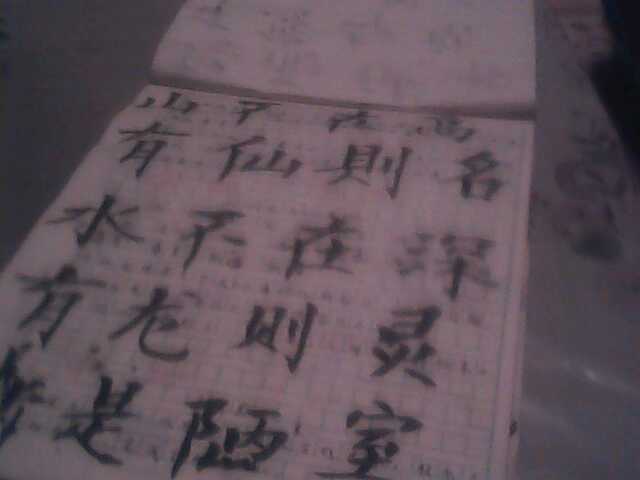 山不在高
有仙則名
水不在深
有龙則灵
是陋室